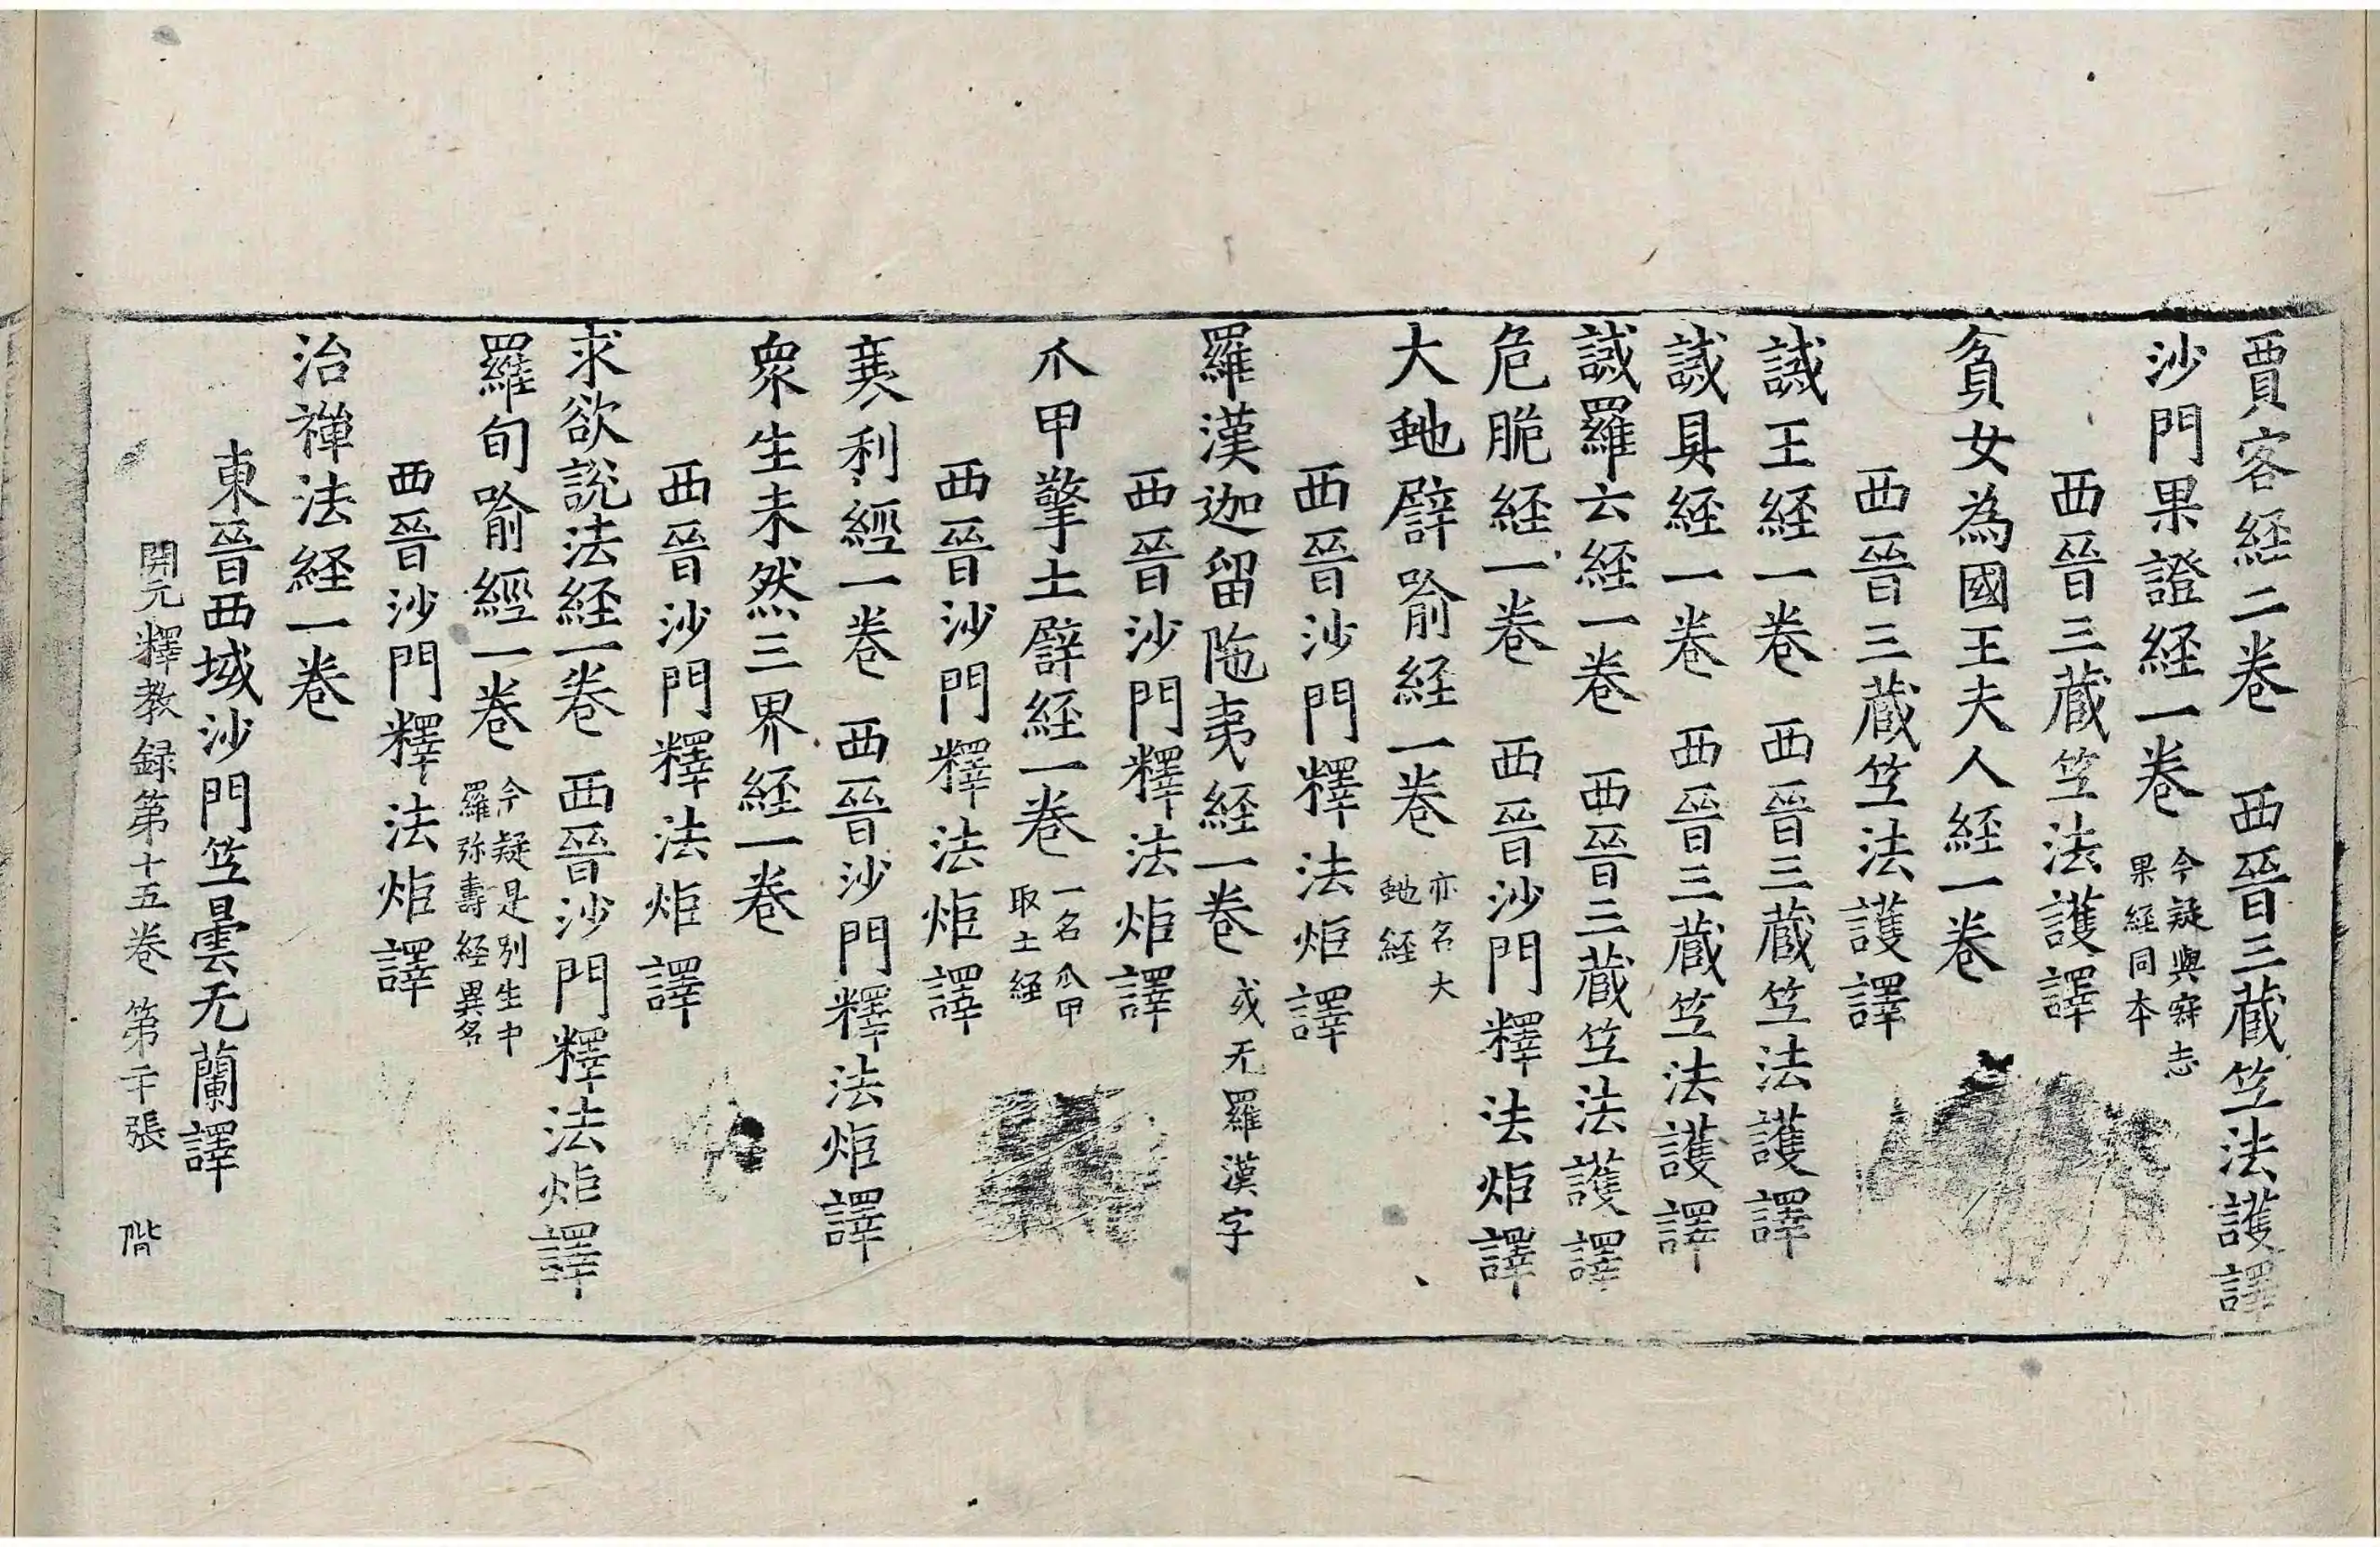 賈客経二巻　西晉三蔵竺法護譯
沙門果證経一巻　今疑與寂志
果経同本
西晉三蔵竺法護譯
貧女為國王夫人経一巻
西晉三蔵竺法護譯
誡王経一巻　西晉三蔵竺法護譯
誡具経一巻　西晉三蔵竺法護譯
誡羅云経一巻　西晉三蔵竺法護譯
危脆経一巻　西晉沙門釋法炬譯
大虵譬喻経一巻　亦名大
虵経
西晉沙門釋法炬譯
羅漢迦留陁夷経一巻　或无羅漢字
西晉沙門釋法炬譯
爪甲擎土譬経一巻　一名爪甲
取土経
西晉沙門釋法炬譯
利經一巻　西晉沙門釋法炬譯
衆生未然三界経一巻
西晉沙門釋法炬譯
求欲說法経一巻　西晉沙門釋法炬譯
羅旬喻經一巻　今疑是別生中
羅弥壽経異名
西晉沙門釋法炬譯
治禪法経一巻
東晉西域沙門竺曇无蘭譯
開元釋教録第十五巻　第張　階